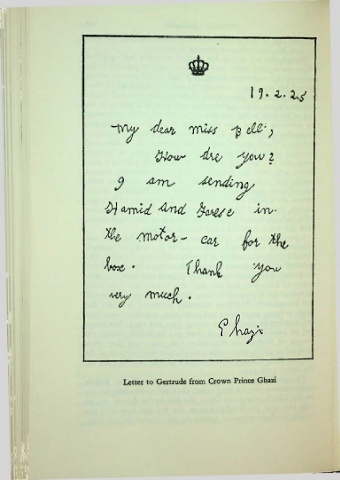 19.2.25
My dear miss Bell;
How are you?
I am sending
Hamid and Farese in
the motor-car for the
box. Thank you
very much.
Ghazi
Letter to Gertrude from Crown Prince Ghazi